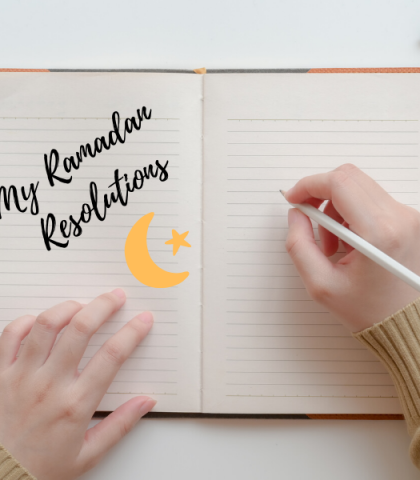 My Ramadan
Resolutions